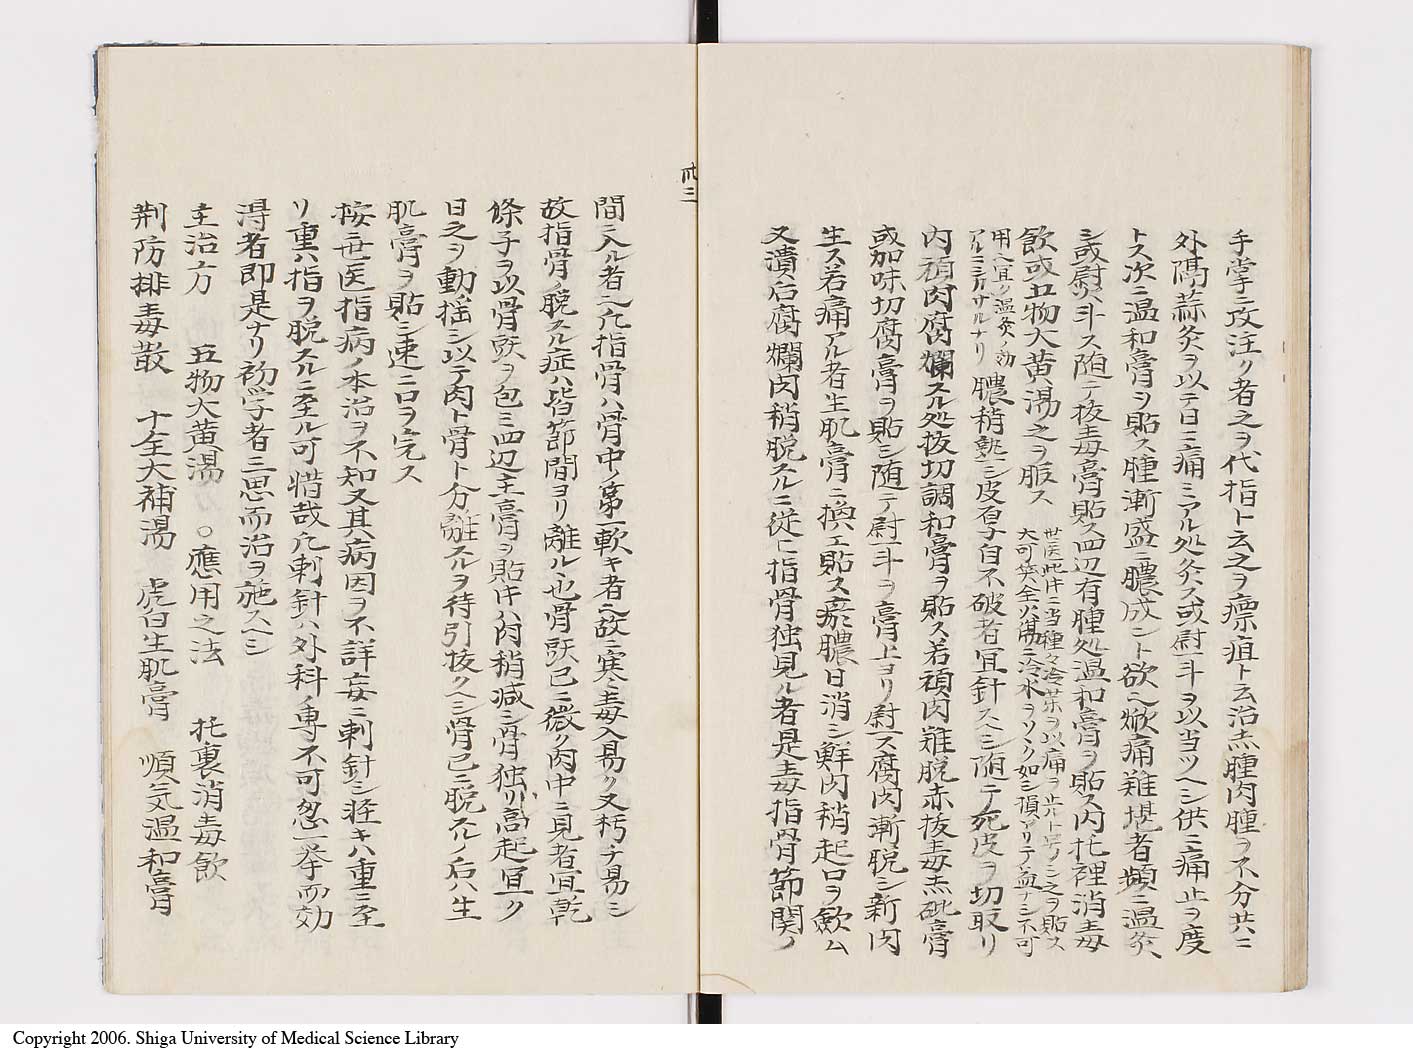 手掌ニ攻注ク者之ヲ代指ト云之ヲ瘭疽ト云治焮腫肉腫ヲ不分共ニ
外隔蒜灸ヲ以テ日ニ痛ミアル処灸ス或尉斗ヲ以当ツヘシ供ニ痛止ヲ度
トス次ニ温和膏ヲ貼ス腫漸盛ニ膿成ント欲ヘ焮痛難堪者頻ニ温灸
シ或尉斗ス随テ抜毒膏貼ス四辺有腫処温和膏ヲ貼ス内托裡消毒
飲或五物大黄湯之ヲ服ス
世医此件ニ当種々冷薬ヲ以痛ヲ止ト号シ之ヲ貼ス
大可笑全火蒻ニ冷水ヲソヽク如シ損アリテ益ナシ不可
用ヘ宜ク温灸ノ効
アルニシカサルナリ
膿稍熟シ皮厚自不破者宜針スヘシ随テ死皮ヲ切取リ
内稍肉腐爛スル処抜切調和膏ヲ貼ス若頑肉難脱赤抜毒焮砒膏
或加味切腐膏ヲ貼シ随テ尉斗ヲ膏上ヨリ尉ス腐肉漸脱シ新肉
生ス若痛アル者生肌膏ニ換ヱ貼ス瘀膿日消シ鮮肉稍起口ヲ歛ム
又潰后腐爛肉稍脱スルニ従ヒ指骨独見ル者是毒指骨節関ノ
卅三
間ニ入ル者也凡指骨ハ骨中ノ第一軟キ者也故ニ寒毒入易ク又朽チ易シ
故指骨ノ脱スル症ハ皆節間ヨリ離ル也骨既已ニ微ク肉中ニ見者宜乾
條子ヲ以骨頭ヲ包ミ四辺主膏ヲ貼件ハ肉稍減シ骨独リ高起宜ク
日之ヲ動揺シ以テ肉ト骨ト分離スルヲ待引抜クヘシ骨已ニ脱スルノ后ハ生
肌膏ヲ貼シ速ニ口ヲ完ス
按世医指病ノ本治ヲ不知又其病因ヲ不詳妄ニ刺針シ軽キハ重ニ至
リ重ハ指ヲ脱スルニ至ル可惜哉凡刺針ハ外科ノ専不可忽一挙而効
得者即是ナリ初学者三思而治ヲ施スヘシ
主治方　五物大黄湯　○應用之法　托裏消毒飲
荊防排毒散　十全大補湯　虎白生肌膏　順気温和膏
Copyright 2006. Shiga University of Medical Science Library